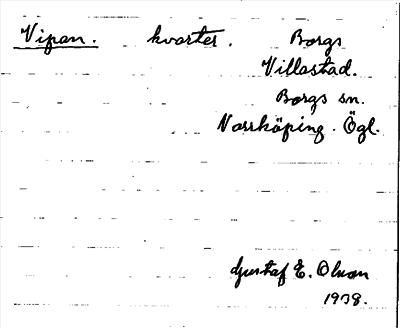 Vipan. kvarter. Borgs
Villastad.
Borgs sn.
Norrköping. Ögl.
Gustaf E. Olson
1938.